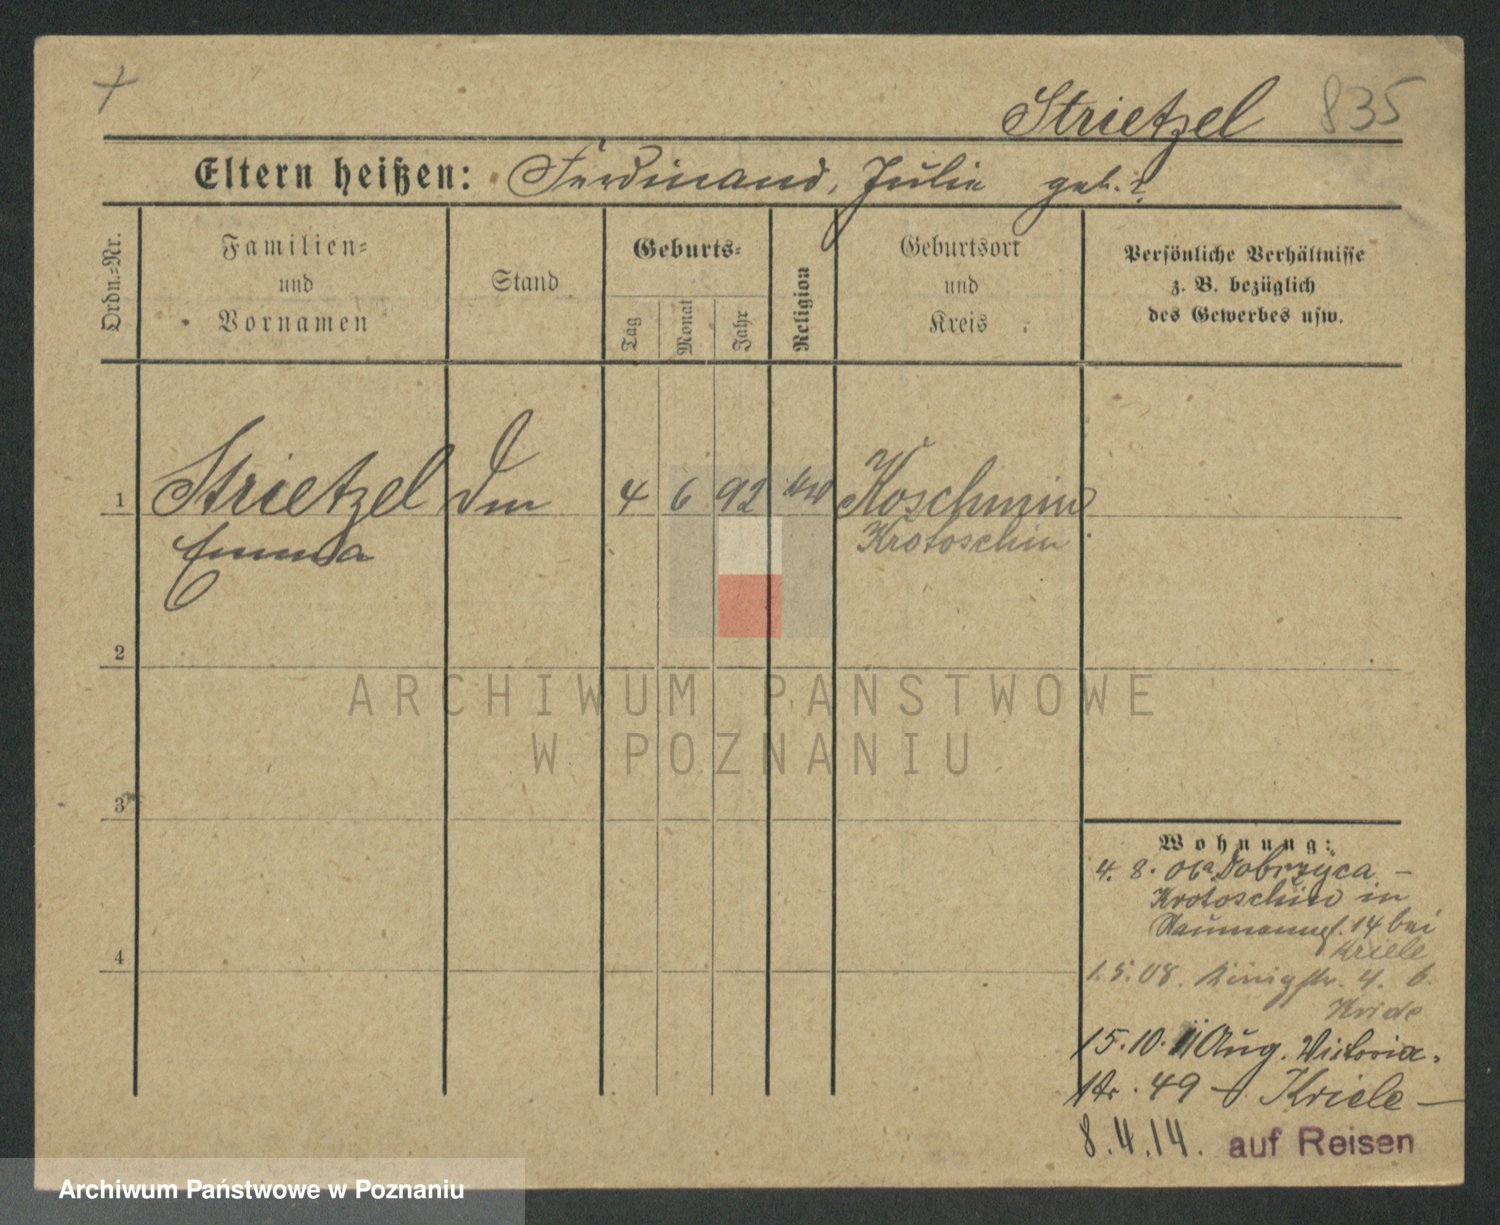 Strietzel 835
Eltern heißen: Ferdinand, Julie geb.?
Ordn.-Nr.
Familien-
und
Vornamen
Stand
Geburts-
Tag
Monat
Jahr
Religion
Geburtsort
und
Kreis
Persönliche Verhältnisse
z. B. bezüglich
des Gewerbes usw.
1 Strietzel 4 6 92 Koschmin
Emma Krotoschin
2
ARCHIWUM PAŃSTWOWE
W POZNANIU
3
Wohnung:
4. 8. Dobrzyca -
Krotoschin in
14 bei
Kriele
1.5.08. Königstr. 4. b.
Kriele
15.10. 11 Aug. Victoria-
str. 49 - Kriele -
4
8.4.14. auf Reisen
Archiwum Państwowe w Poznaniu